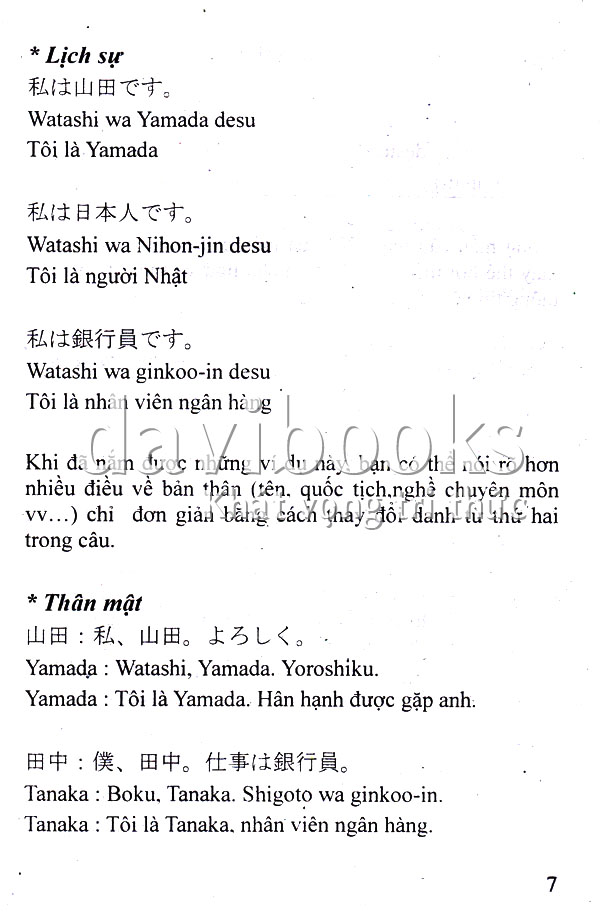 * Lịch sự
私は山田です。
Watashi wa Yamada desu
Tôi là Yamada
私は日本人です。
Watashi wa Nihon-jin desu
Tôi là người Nhật
私は銀行員です。
Watashi wa ginkoo-in desu
Tôi là nhân viên ngân hàng
davibooks
Khi đã nắm được những ví dụ này, bạn có thể nói rõ hơn
nhiều điều về bản thân (tên, quốc tịch,nghề chuyên môn
Khát vọng tri thức
vv…) chỉ đơn giản bằng cách thay đổi danh từ thứ hai
trong câu.
* Thân mật
山田：私、山田。よろしく。
Yamada : Watashi, Yamada. Yoroshiku.
Yamada : Tôi là Yamada. Hân hạnh được gặp anh.
田中：僕、田中。仕事は銀行員。
Tanaka : Boku, Tanaka. Shigoto wa ginkoo-in.
Tanaka : Tôi là Tanaka, nhân viên ngân hàng.
7